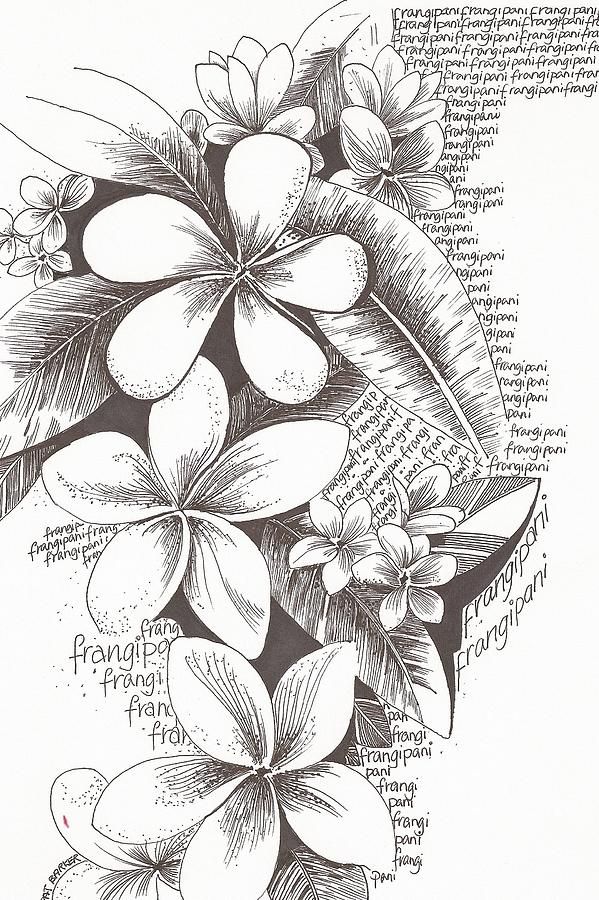 frangipani frangipani frangipani
frangipani frangipani frangipani fra
frangipani frangipani frangipani
frangipani frangipani frangipani
frangipani frangipani frangipani
frangipani frangipani fran
frangipani frangipani frangipani
frangipani
frangipani
frangipani
frangipani
angipani
ngipani
ani
frangipani
frangipani
frangipani
frangipani
angipani
frangipani
ngipani
pani
angipani
ngipani
gipani
pani
frangipani
rangipani
angipani
pani
frangipani
frangipani
frangipani
frangip
frangipani
frangipani f
frangipani frangipa
frangipani frangi
frangipani fran
frangi
frangi
pani fr
frangip
frangipani frang
frangipani fran
frangipani
frangipani
frang
frangipa
frangi
franc
fran
pani
frangi
frangipani
pani
frangi
pani
frangi
pani
frangi
pani
PAT BARKER